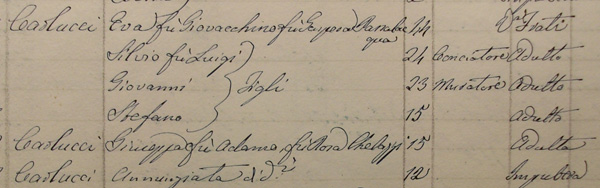 Carlucci Eva fu Giovacchino fu Teresa 44 Frati
Silvio fu Luigi 24 Conciatore Adulto
Giovanni } figli 23 Muratore Adulto
Stefano 15 Adulto
Carlucci Giuseppa fu Adamo, fu Rosa Chelazzi 15 Adulta
Carlucci Annunziata di d.ª 12 Impubera